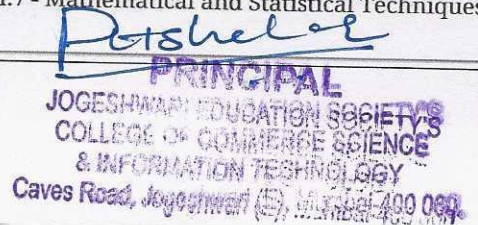 .7 - Mathematical and Statistical Techniques
PRINCIPAL
JOGESHWARI EDUCATION SOCIETY'S
COLLEGE OF COMMERCE SCIENCE
& INFORMATION TECHNOLOGY
Caves Road, Jogeshwari (E), Mumbai-400 060.